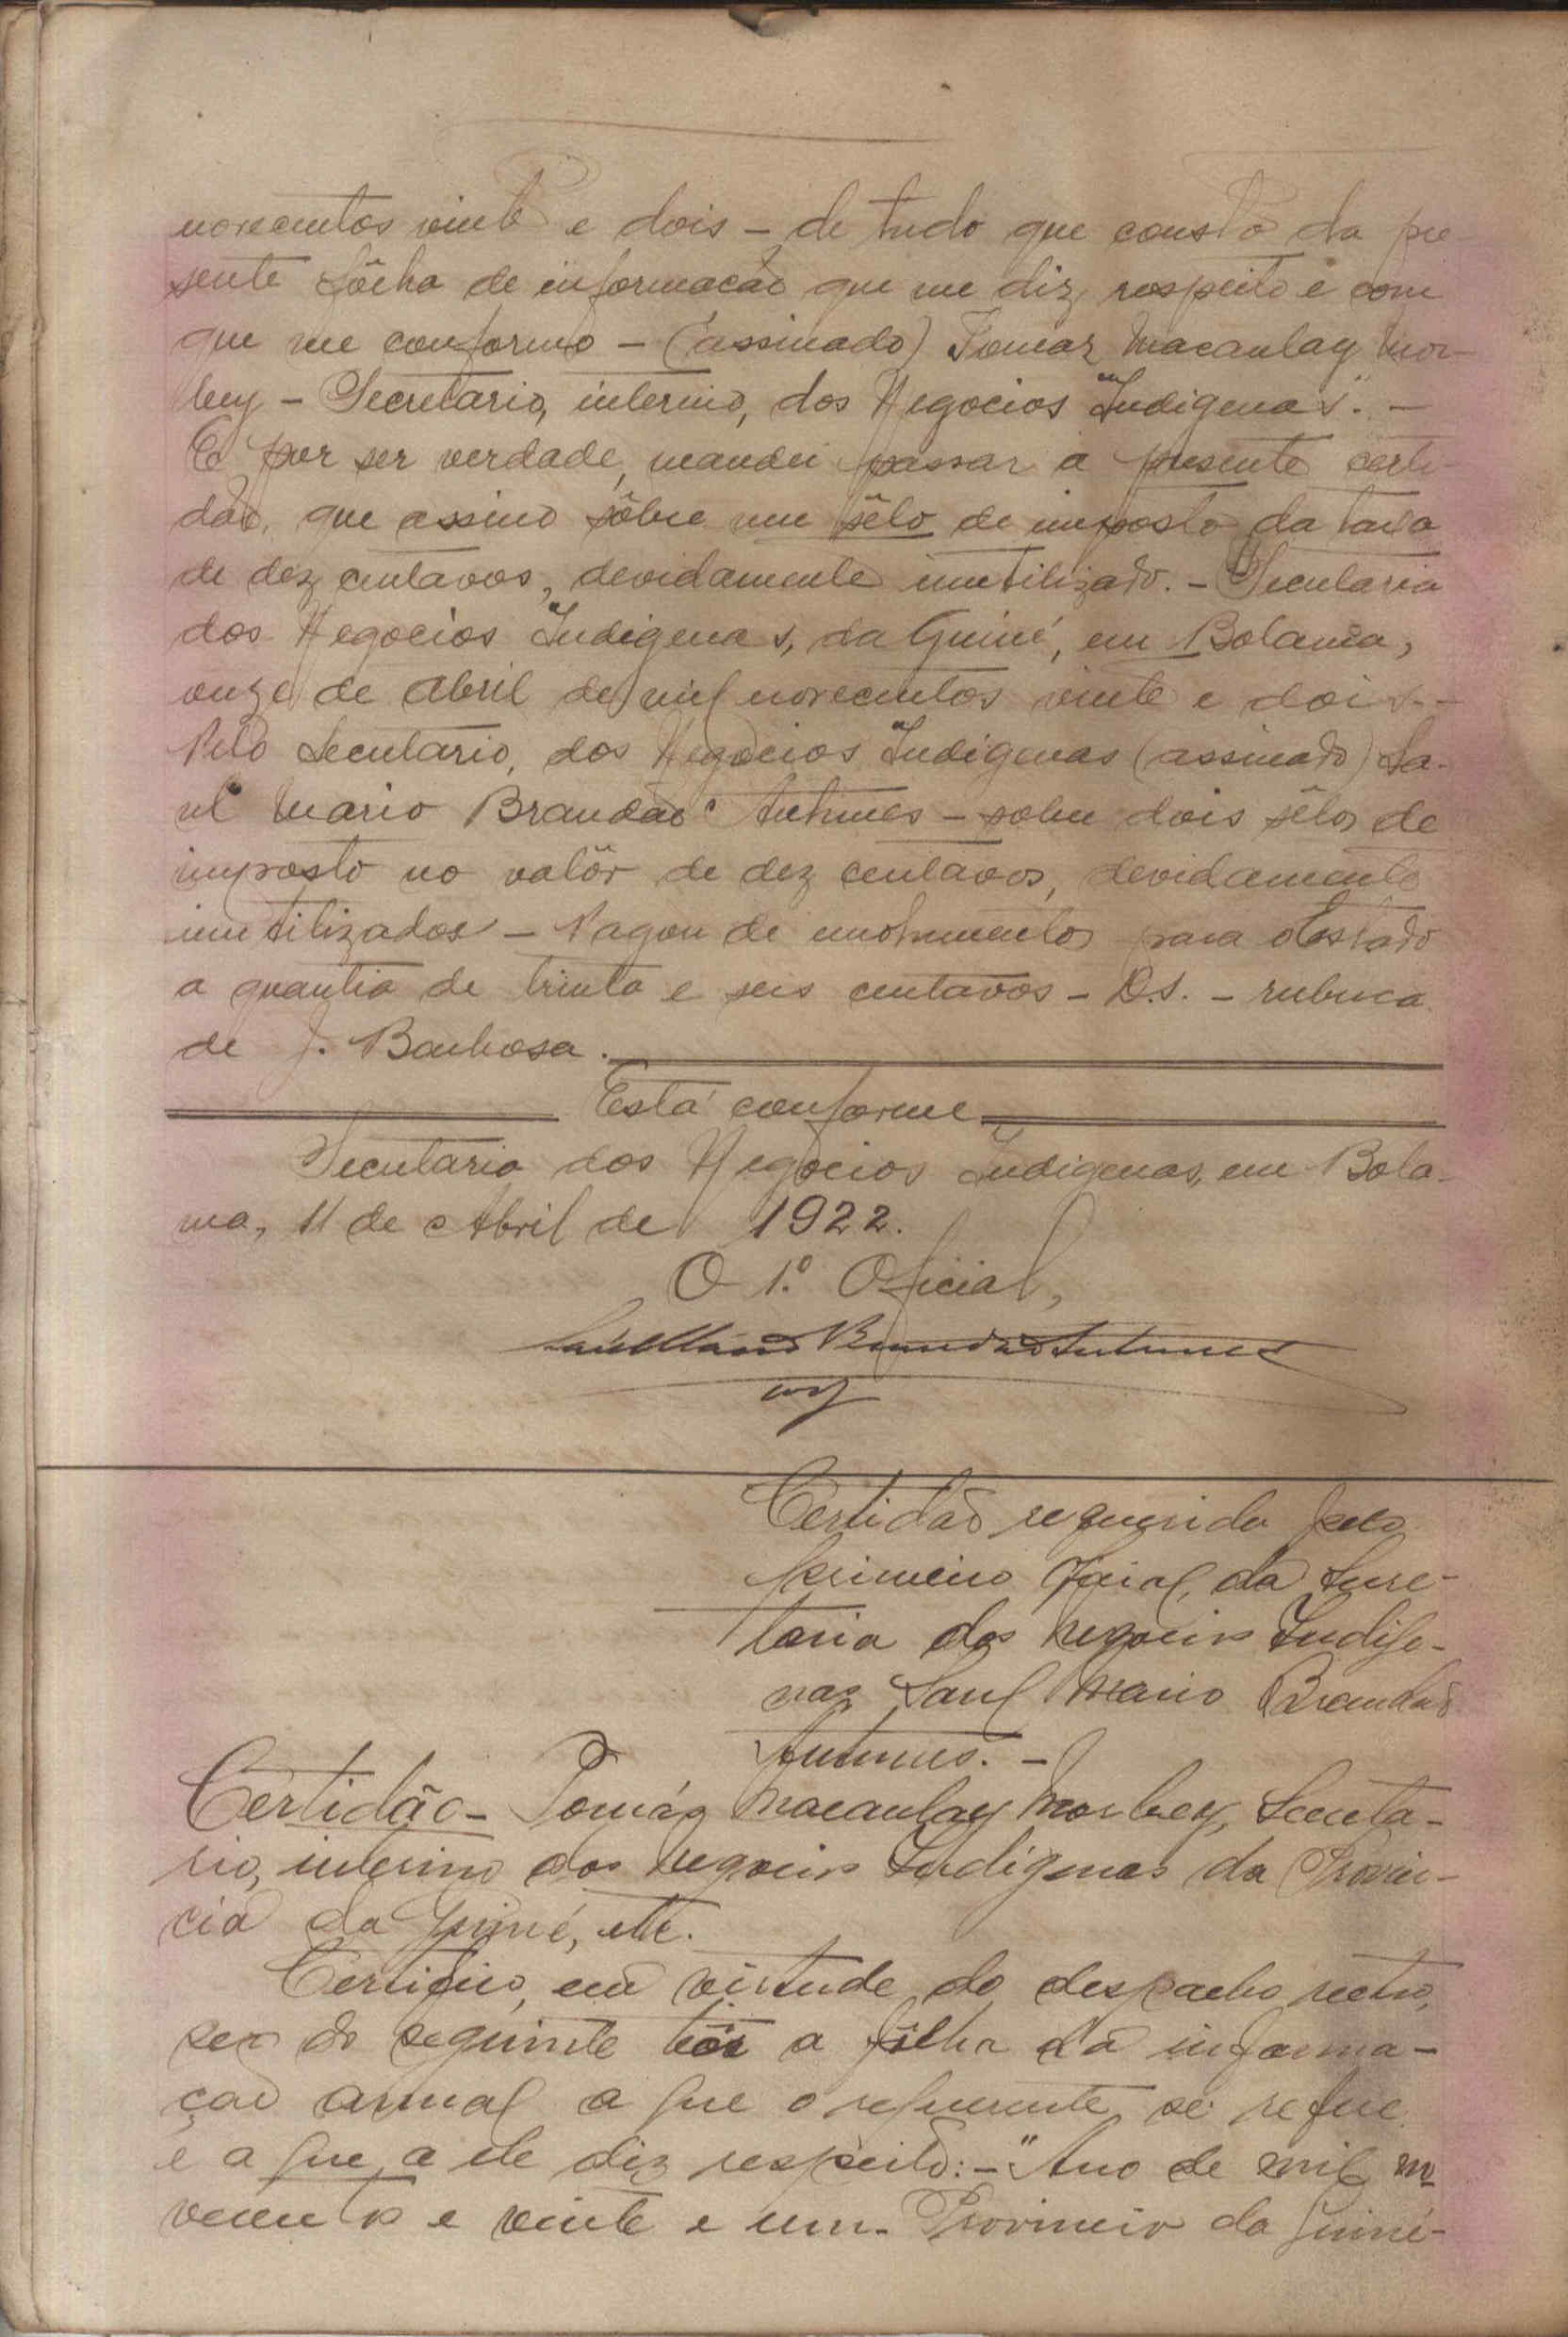 novecentos vinte e dois – de tudo que consta da pre-
sente fôlha de informação que me diz respeito e com
que me conformo – (assinado) Tomaz Macaulay Mor-
bey – Secretario, interino, dos Negocios Indigenas". –
E por ser verdade, mandei passar a presente certi-
dão, que assino sôbre um sêlo de imposto da taxa
de dez centavos, devidamente inutilizado. – Secretaria
dos Negocios Indigenas, da Guiné, em Bolama,
onze de Abril de mil novecentos vinte e dois. –
Pelo Secretario, dos Negocios Indigenas (assinado) Sa-
ul Mario Brandão Antunes – sobre dois sêlos de
imposto no valôr de dez centavos, devidamente
inutilizados – Pagou de emolumentos para o Estado
a quantia de trinta e seis centavos – D.S. – rubrica
de J. Barbosa.
Está conforme
Secretaria dos Negocios Indigenas, em Bola-
ma, 11 de Abril de 1922.
O 1.º Oficial,
Saul Mario Brandão Antunes
Certidão requerida pelo
primeiro oficial, da Secre-
taria dos Negocios Indige-
nas, Saul Mario Brandão
Antunes. –
Certidão – Tomáz Macaulay Morbey, Secreta-
rio, interino dos Negocios Indigenas da Provin-
cia da Guiné, etc.
Certifico, em virtude do despacho retro,
ser do seguinte teôr a fôlha da informa-
ção anual a que o requerente se refere
e a que a ele diz respeito: – "Ano de mil no-
vecentos e vinte e um. Provincia da Guiné –